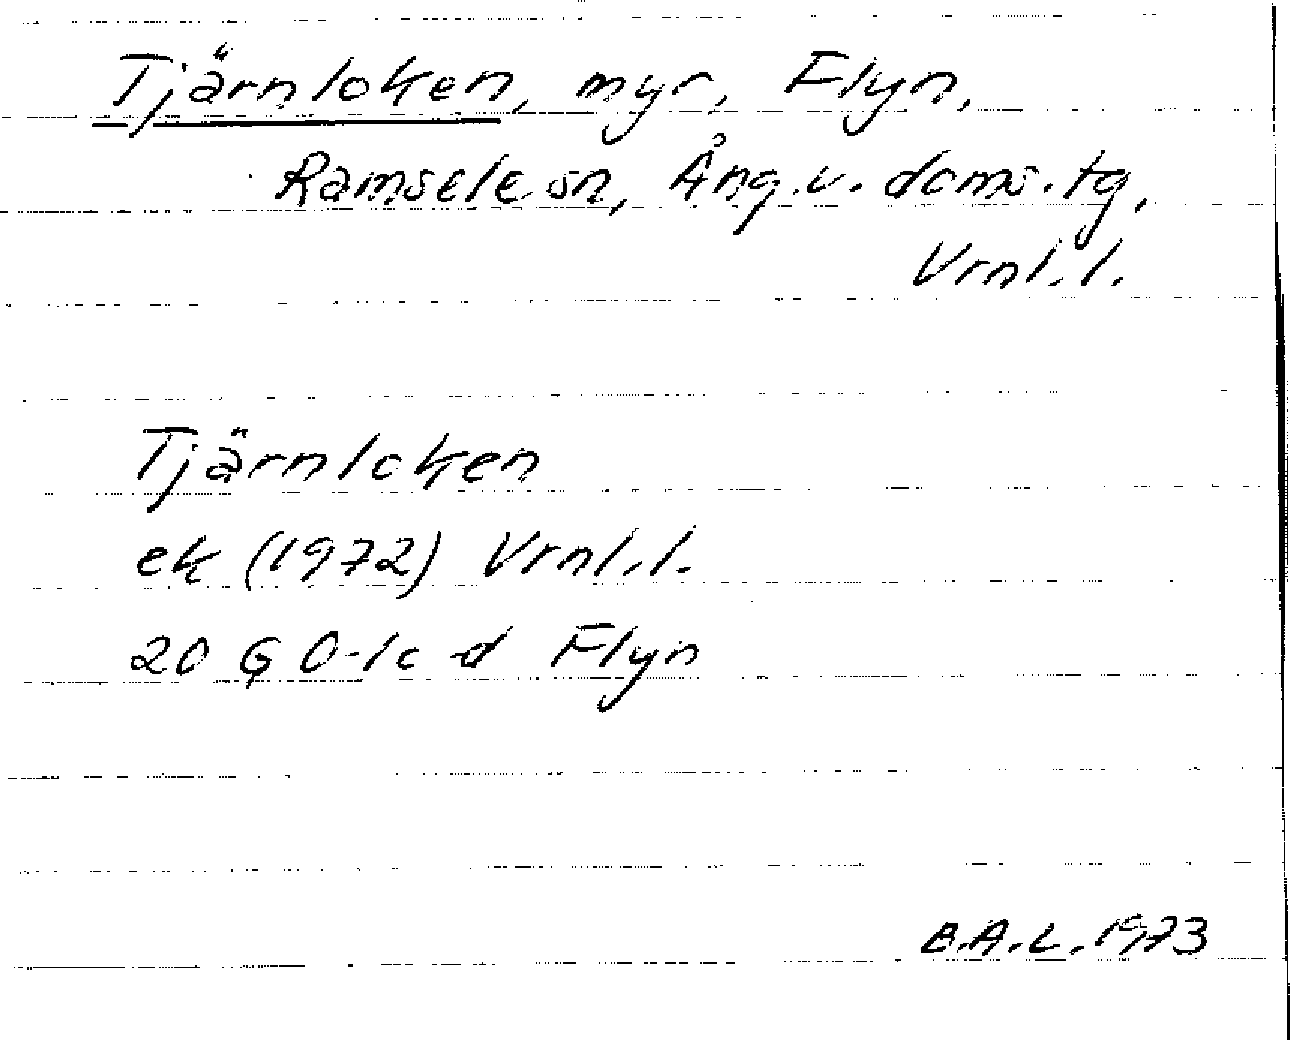 Tjärnloken, myr, Flyn,
Ramsele sn, Ång.v. doms.tg,
Vrnl.l.
Tjärnloken
ek (1972) Vrnl.l.
20 G 0-1c d Flyn
B.A.L. 1973